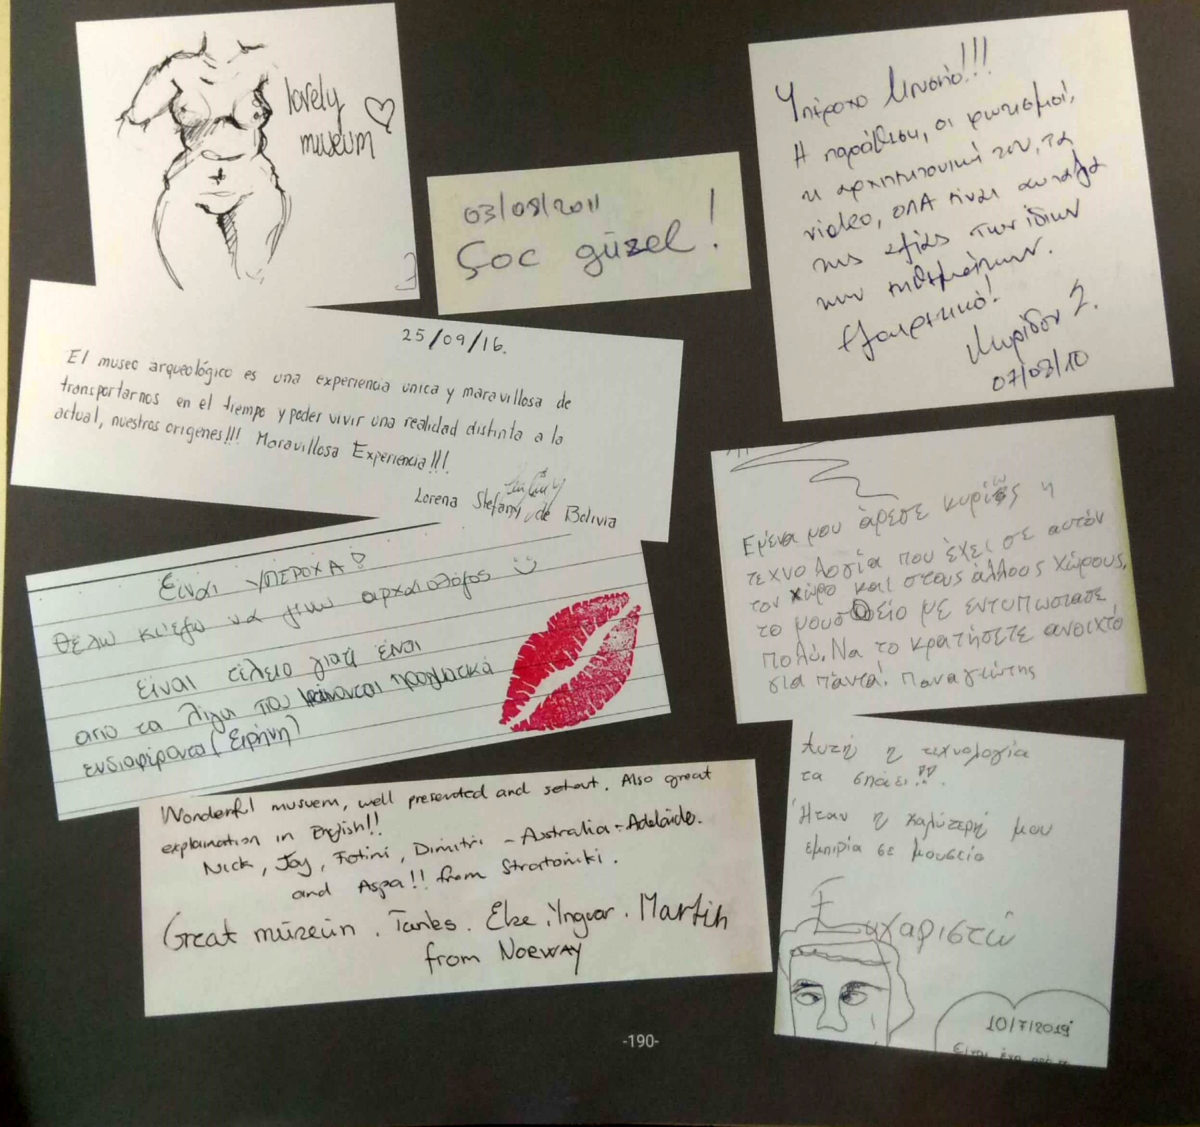 lovely
museum
03/08/2011
Çoc güzel!
Υπέροχο Μουσείο!!!
Η παράθεση, οι φωτισμοί,
η αρχιτεκτονική του, τα
video, όλΑ είναι αντάξια
της αξίας των ίδιων
των εκθεμάτων.
Εξαιρετικό!
07/08/10
25/09/16.
El museo arqueológico es una experiencia unica y maravillosa de
transportarnos en el tiempo y poder vivir una realidad distinta a la
actual, nuestros origenes!!! Maravillosa Experiencia!!!
Lorena Stefany de Bolivia
Εμένα μου άρεσε κυρίως η
τεχνολογία που έχει σε αυτόν
τον χώρο και στους άλλους χώρους,
το μουσείο με εντυπωσιασε
πολύ. Να το κρατήσετε ανοιχτό
για πάντα! Παναγιώτης
Είναι ΥΠΕΡΟΧΑ!
Θέλω κι'εγω να γίνω αρχαιολόγος
είναι τέλειο γιατί είναι
από τα λίγα που φαίνονται πραγματικά
ενδιαφέροντα (Ειρήνη)
Wonderful musuem, well presented and setout. Also great
explanation in English!!
Nick, Jay, Fotini, Dimitri - Australia - Adelaide.
and Aspa!! from Stratoniki.
Great müzeün. Tanks. Else. Yngvar. Martin
from Norway
Αυτή η τεχνολογία
τα σπάει!!
Ήταν η καλύτερή μου
εμπιρία σε μουσείο
Ευχαριστώ
10/7/2019
-190-